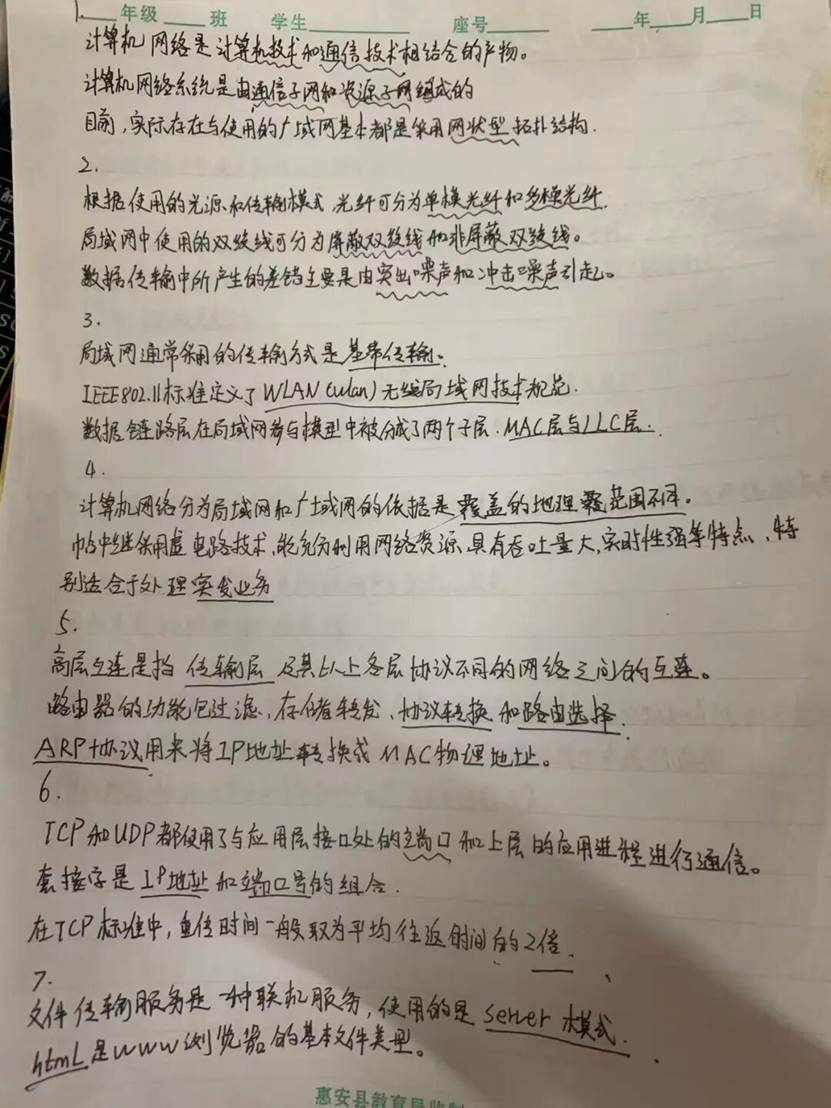 1.___年级___班 学生________ 座号________ ___年___月___日
计算机网络是计算机技术和通信技术相结合的产物。
计算机网络系统是由通信子网和资源子网组成的
目前,实际存在与使用的广域网基本都是采用网状型拓扑结构.
2.
根据使用的光源和传输模式,光纤可分为单模光纤和多模光纤.
局域网中使用的双绞线可分为屏蔽双绞线和非屏蔽双绞线。
数据传输中所产生的差错主要是由突出噪声和冲击噪声引起。
3.
局域网通常采用的传输方式是基带传输。
IEEE802.11标准定义了WLAN(wlan)无线局域网技术规范.
数据链路层在局域网参与模型中被分成了两个子层.MAC层与LLC层.
4.
计算机网络分为局域网和广域网的依据是覆盖的地理范围不同。
帧中继采用虚电路技术,能充分利用网络资源,具有吞吐量大,实时性强等特点,特
别适合于处理突发业务
5.
高层互连是指传输层及其以上各层协议不同的网络之间的互连。
路由器的功能包过滤,存储转发,协议转换和路由选择.
ARP协议用来将IP地址转换成MAC物理地址。
6.
TCP和UDP都使用了与应用层接口处的端口和上层的应用进程进行通信。
套接字是IP地址和端口号的组合.
在TCP标准中,重传时间一般取为平均往返时间的2倍.
7.
文件传输服务是一种联机服务,使用的是server模式.
html是www浏览器的基本文件类型。
惠安县教育局监制